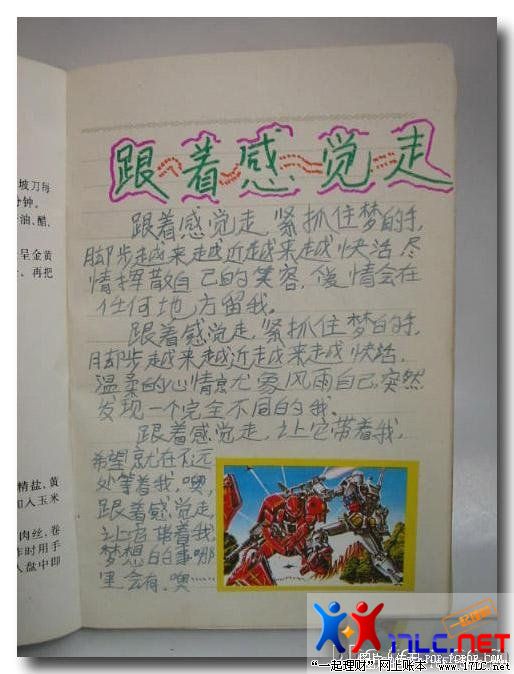 跟着感觉走
跟着感觉走,紧抓住梦的手,
脚步越来越近越来越快活,尽
情挥散自己的笑容,傻情会在
任何地方留我。
跟着感觉走,紧抓住梦的手,
脚步越来越近越来越快活,
温柔的心情就象风雨自己,突然
发现一个完全不同的我。
跟着感觉走,让它带着我,
希望就在不远
处等着我,噢,
跟着感觉走
让它带着我
梦想的事哪
里会有,噢
坡刀每
分钟。
油、醋、
呈金黄
再把
精盐、黄
加入玉米
肉丝,卷
作时用手
入盘中即
一起理财
17LC.NET
“一起理财”网上账本 www.17LC.net